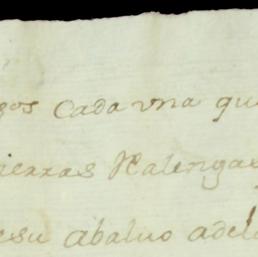 gos Cada vna que
tierras Realengas
esu abaluo adela